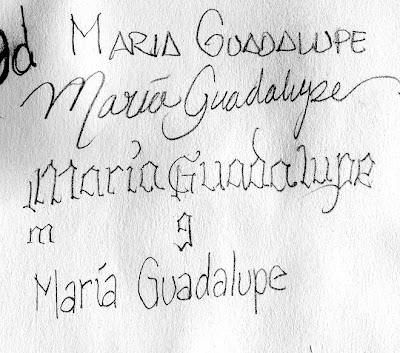 d MARIA GUADALUPE
María Guadalupe
María Guadalupe
m g
María Guadalupe